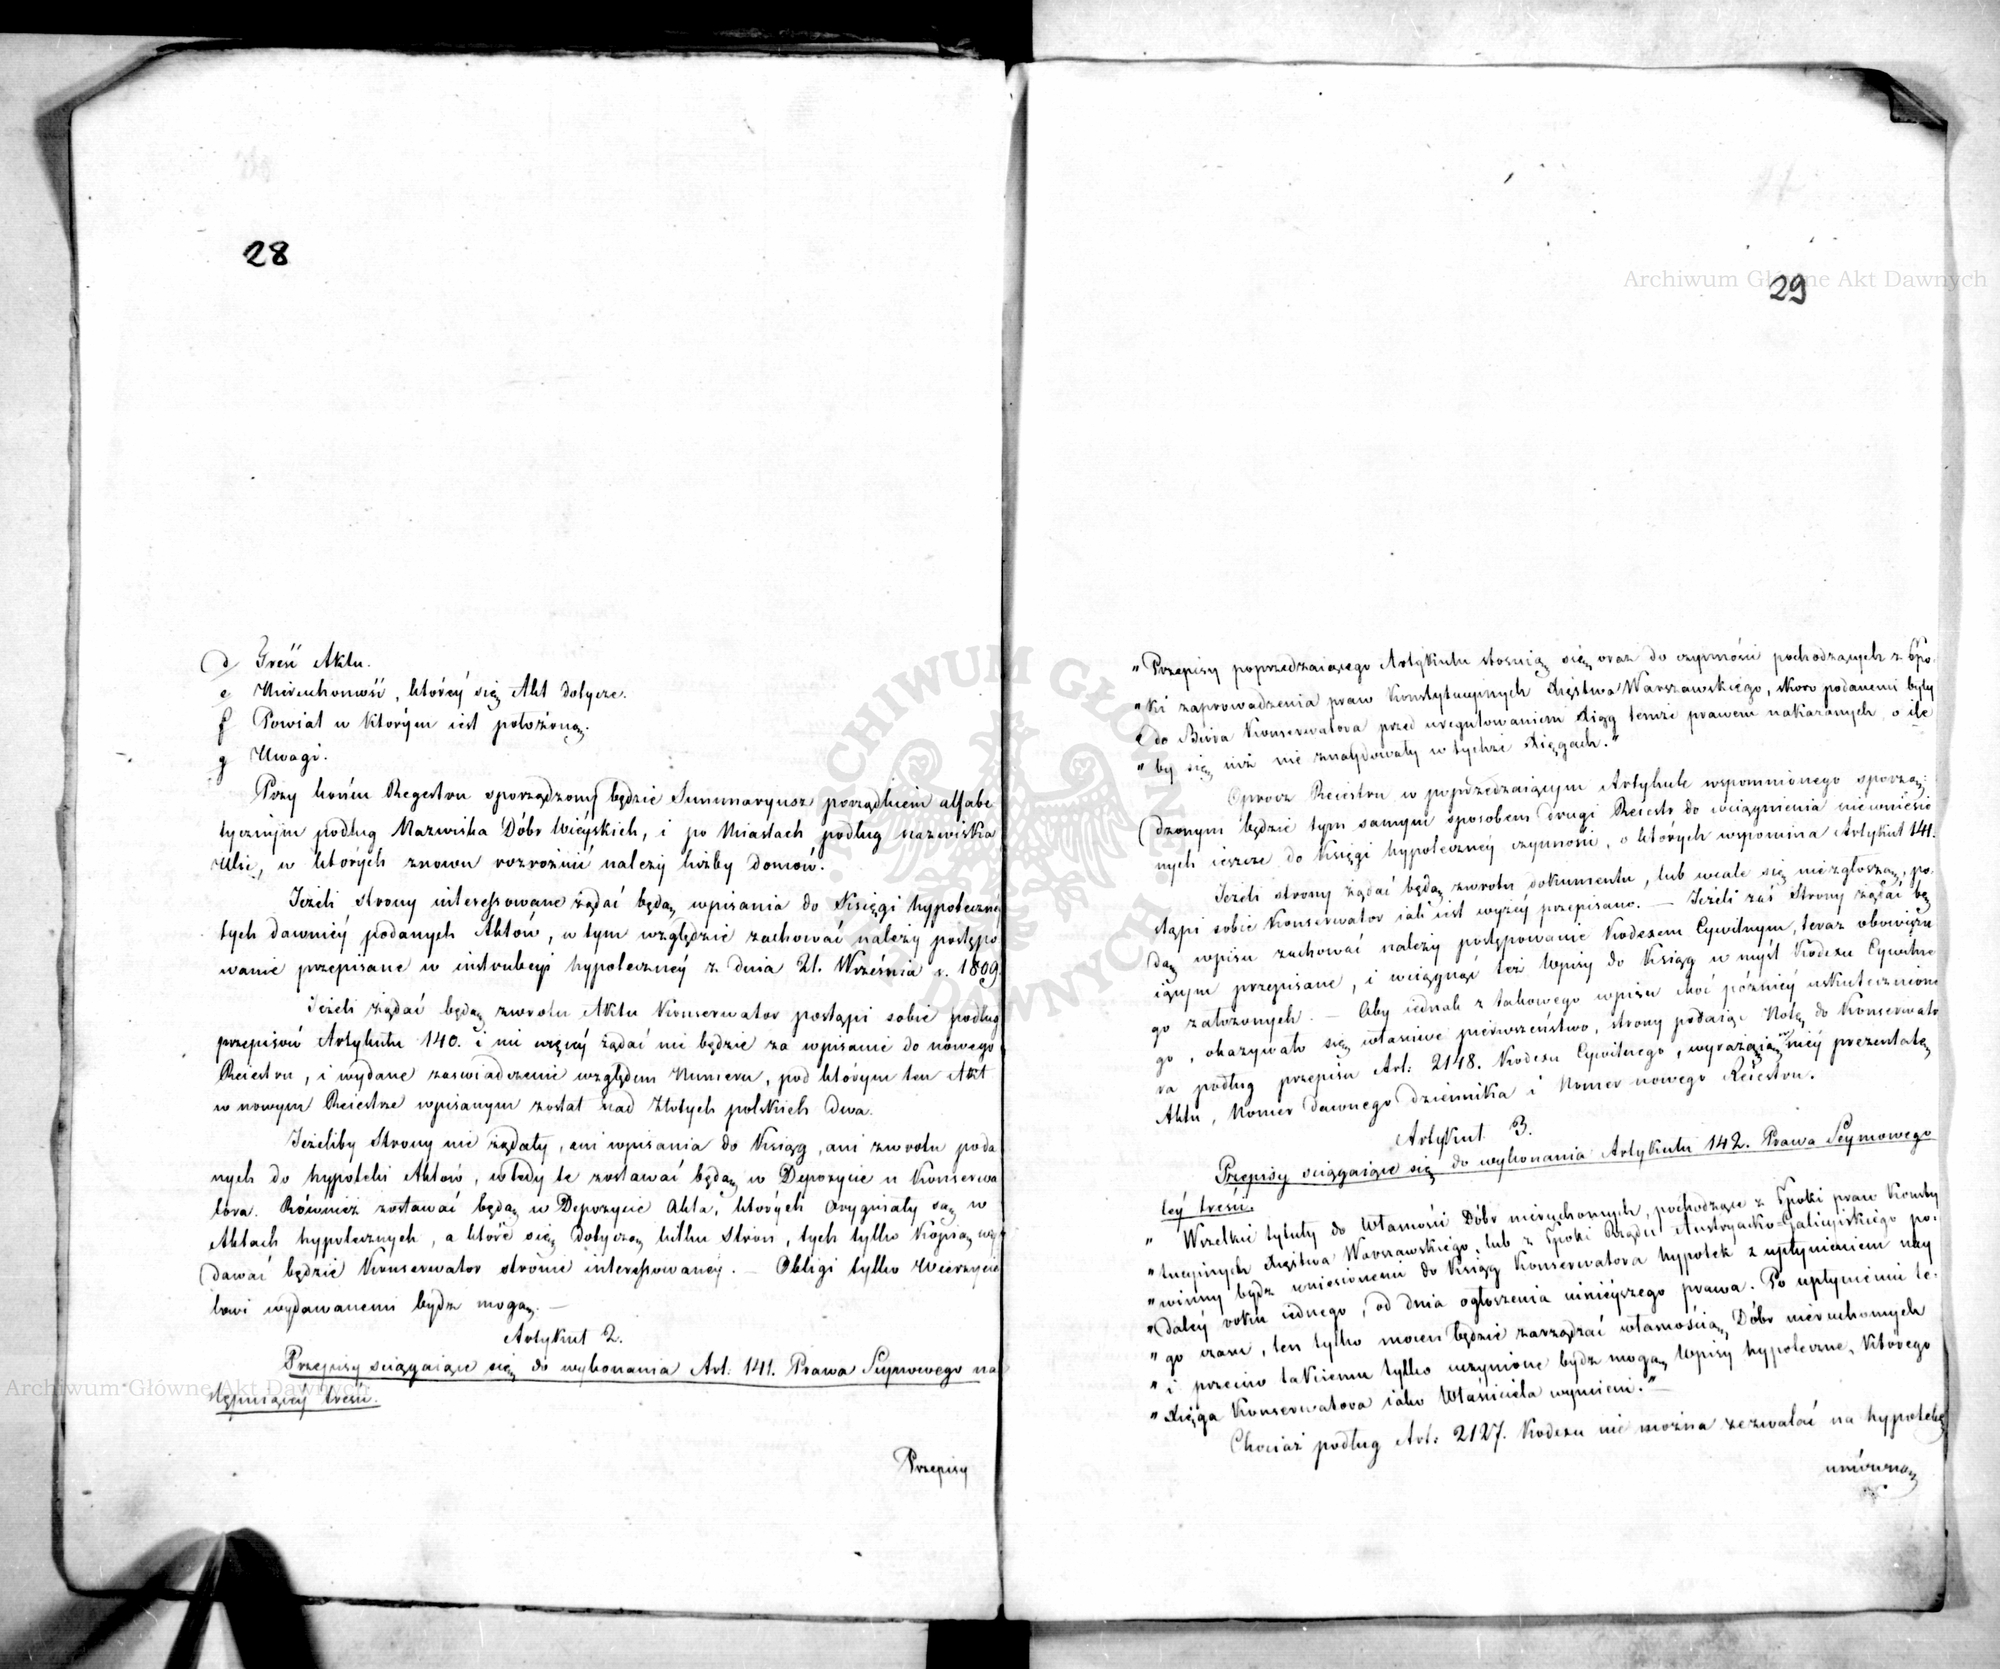 28
d Treść Aktu.
e Nieruchomość, któréy się Akt dotycze.
f Powiat w którym iest położoną.
g Uwagi.
Przy końcu Regestru sporządzony będzie Summaryusz porządkiem alfabe
tycznijm podług Nazwiska Dóbr Wiéyskich, i po Miastach podług nazwiska
Ulic, w których znowu rozróżnić należy liczby domów.
Jeżeli strony interessowane żądać będą wpisania do Księgi hypoteczné
tych dawniéy podanych Aktów, w tym względzie zachować należy postępo
wanie przepisane w instrukcyi hypotecznéy z dnia 21. Września r. 1809.
Jeżeli żądać będą zwrotu Aktu Konserwator postąpi sobie podług
przepisów Artykułu 140. i nic więcéy żądać nie będzie za wpisanie do nowego
Reiestru, i wydane zaświadczenie względem Numeru, pod którym ten Akt
w nowym Reiestrze wpisanym został nad Złotych polskich dwa.
Jeżeliby Strony nie żądały, ani wpisania do Ksiąg, ani zwrotu poda
nych do hypoteki Aktów, wtedy te zostawać będą w Depozycie u Konserwa
tora. Również zostawać będą w Depozycie Akta, których Oryginały są w
Aktach hypotecznych, a które się dotyczą kilku Stron, tych tylko Kopią wy
dawać będzie Konserwator stronie interessowanéy. — Obligi tylko Wierzycie
lowi wydawanemi bydz mogą. —
Artykuł 2.
Przepisy sciągaiące się do wykonania Art: 141. Prawa Seymowego na
stępuiącéy treści.
Przepisy
29
" Przepisy poprzedzaiącego Artykułu stosuią się oraz do czynności pochodzących z Epo-
" ki zaprowadzenia praw Konstytucyinych Xięstwa Warszawskiego, skoro podanemi były
" do Biora Konserwatora przed uregulowaniem Xiąg temże prawem nakazanych, o ile
" by się iuż nie znaydowały w tychże Xięgach."
Oprocz Reiestru w poprzedzaiącym Artykule wspomnionego sporzą-
dzonym będzie tym samym sposobem drugi Reiestr do wciągnienia niewniesio
nych ieszcze do Księgi hypotecznéy czynności, o których wspomina Artykuł 141.
Jeżeli strony żądać będą zwrotu dokumentu, lub wcale się niezgłoszą, po-
stąpi sobie Konserwator iak iest wyżéy przepisano. — Jeżeli zaś Strony żądać bę
dą wpisu zachować należy postępowanie Kodexem Cywilnym, teraz obowiązu
iącym przepisane, i wciągnąć też Wpisy do Ksiąg w myśl Kodexu Cywilne
go założonych. — Aby iednak z takowego wpisu choć późniéy uskutecznione
go, okazywało się właściwe pierwszeństwo, strony podaiąc Notę do Konserwato
ra podług przepisu Art: 2148. Kodexu Cywilnego, wyrażaią w niéy prezentatę
Aktu, Numer dawnego dziennika i Numer nowego Reiestru.
Artykuł 3.
Przepisy sciągaiące się do wykonania Artykułu 142. Prawa Seymowego
téy treści.
" Wszelkie tytuły do Własności Dóbr nieruchomych, pochodzące z Epoki praw Konsty
" tucyinych Xięstwa Warszawskiego, lub z Epoki Rządu Austryacko-Galicyiskiego po-
" winny bydz wniesionemi do Ksiąg Konserwatora hypotek z upłynieniem nay
" daléy roku iednego, od dnia ogłoszenia ninieyszego prawa. Po upłynieniu te-
" go czasu, ten tylko mocen będzie zarządzać własnością Dóbr nieruchomych
" i przeciw takiemu tylko uczynione bydz mogą Wpisy hypoteczne, którego
" Xięga Konserwatora iako Właściciela wymieni." —
Chociaż podług Art: 2127. Kodexu nie można zezwalać na hypotekę
umówną
Archiwum Główne Akt Dawnych
Archiwum Główne Akt Dawnych
ARCHIWUM GŁÓWNE AKT DAWNYCH